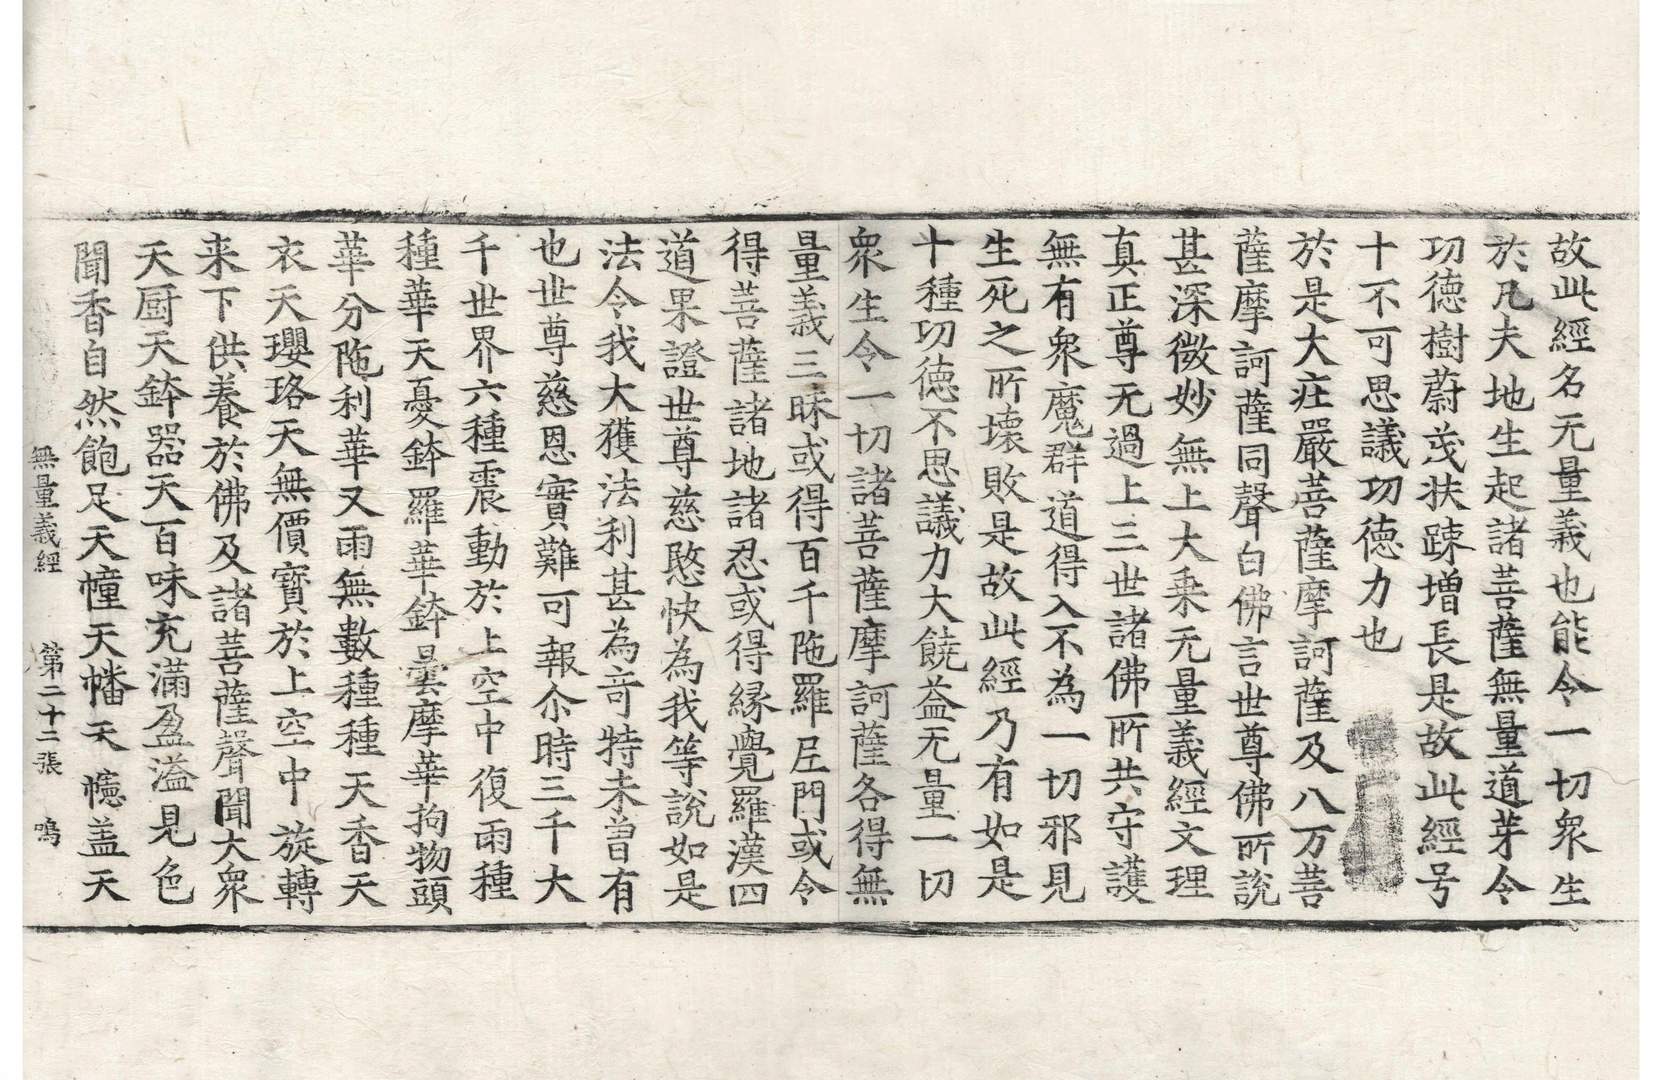 故此經名无量義也能令一切衆生
於凡夫地生起諸菩薩無量道芽令
功德樹蔚茂扶踈增長是故此經号
十不可思議功德力也
於是大莊嚴菩薩摩訶薩及八万菩
薩摩訶薩同聲白佛言世尊佛所說
甚深微妙無上大乘无量義經文理
真正尊无過上三世諸佛所共守護
無有衆魔群道得入不為一切邪見
生死之所壞敗是故此經乃有如是
十種功德不思議力大饒益无量一切
衆生令一切諸菩薩摩訶薩各得無
量義三昧或得百千陁羅尼門或令
得菩薩諸地諸忍或得緣覺羅漢四
道果證世尊慈愍快為我等說如是
法令我大獲法利甚為竒特未曽有
也世尊慈恩實難可報尒時三千大
千世界六種震動於上空中復雨種
種華天憂鉢羅華鉢曇摩華拘物頭
華分陁利華又雨無數種種天香天
衣天瓔珞天無價寶於上空中旋轉
来下供養於佛及諸菩薩聲聞大衆
天厨天鉢器天百味充滿盈溢見色
聞香自然飽足天幢天幡天幰盖天
無量義經 第二十二張 鳴